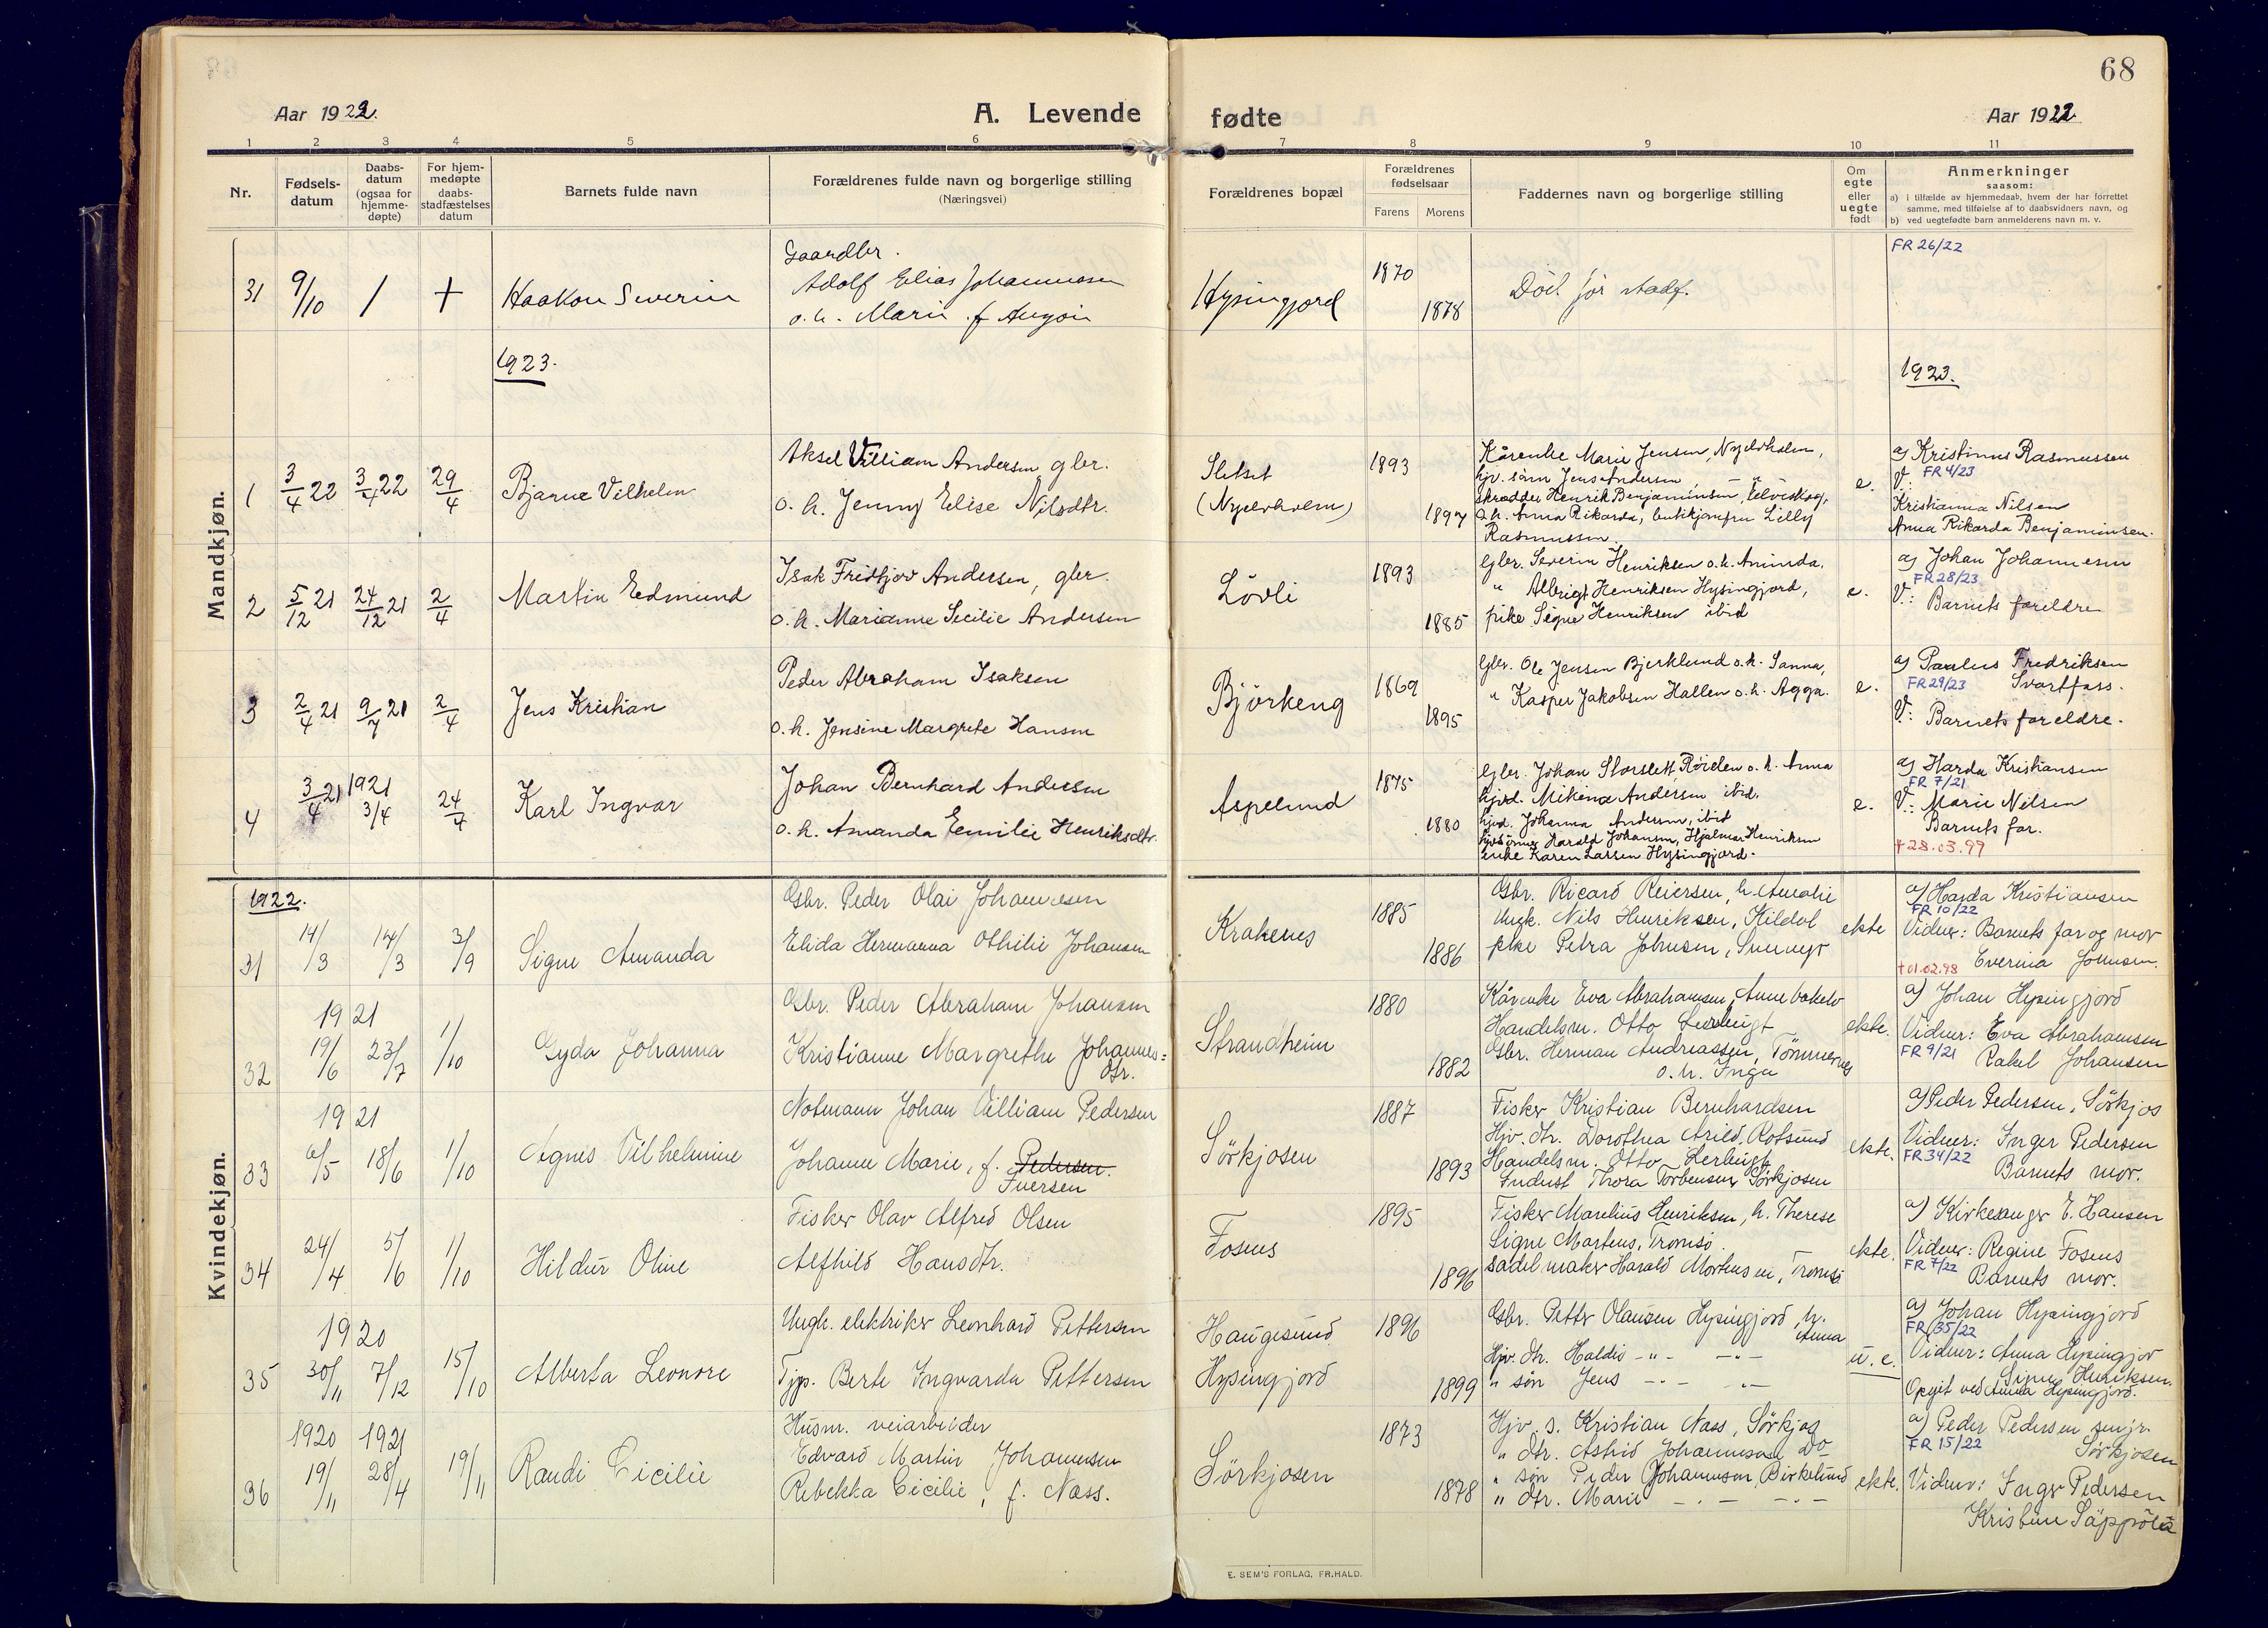 68
Aar 1922.
A. Levende fødte
Aar 1922
1 2 3 4 5 6 7 8 9 10 11
Nr.
Fødsels-
datum
Daabs-
datum
(ogsaa for
hjemme-
døpte)
For hjem-
medøpte
daabs-
stadfæstelses
datum
Barnets fulde navn
Forældrenes fulde navn og borgerlige stilling
(Næringsvei)
Forældrenes bopæl
Forældrenes
fødselsaar
Farens Morens
Faddernes navn og borgerlige stilling
Om
egte
eller
uegte
født
Anmerkninger
saasom:
a) i tilfælde av hjemmedaab, hvem der har forrettet
samme, med tilføielse af to daabsvidners navn, og
b) ved uegtefødte barn anmelderens navn m. v.
Mandkjøn.
31 9/10 / + Haakon Severin
Gaardbr.
Adolf Elias Johannesen
o.h. Marie f.
Hysingjord
1870
1878
Død før stadf.
FR 26/22
1923.
1923.
1 3/4 22 3/4 22 29/4 Bjarne Vilhelm
Aksel Villiam Andersen gbr.
o. h. Jenny Elise Nilsdtr.
Sletset
(Nyelvholm)
1893
1897
Kårenke Marie Jensen, Nyelvholm,
hjv. sønn Jens Andersen, — " —
skrædder Henrik Benjaminsen,
o.h. Anna Rikarda, butikjomfru Lilly
Rasmussen
e.
a) Kristinus Rasmussen
V.: FR 4/23
Kristianna Nilsen
Anna Rikarda Benjaminsen.
2 5/12 21 24/12 21 2/4 Martin Edmund
Isak Fridtjov Andersen, gbr.
o.h. Marianne Secilie Andersen
Løvli
1893
1885
Gbr. Severin Henriksen o.h. Aminda,
" Albrigt Henriksen Hysingjord,
pike Signe Henriksen ibid
e.
a) Johan Johannesen
FR 28/23
V.: Barnets foreldre
3 2/4 21 9/7 21 2/4 Jens Kristian
Peder Abraham Isaksen
o.h. Jensine Margrete Hansen
Bjørkeng
1869
1895
Gbr. Ole Jensen Bjerklund o.h. Sanna,
" Kasper Jakobsen Hallen o.h. Agga.
e.
a) Paulus Fredriksen
FR 29/23 Svartfoss.
V.: Barnets foreldre.
4 3/4 21 1921 3/4 24/7 Karl Ingvar
Johan Bernhard Andersen
o.h. Amanda Emilie Henriksdtr.
Aspelund
1875
1880
Gbr. Johan Storslett, Røielen o.h. Anna
hjvd. Mikina Andersen ibid.
hjvd. Johanna Andersen, ibid
hjvsønner Harald Johansen, Hjalmar Henriksen
enke Karen Larsen Hysingjord.
e.
a) Harda Kristiansen
FR 7/21
V.: Marie Nilsen
Barnets far.
+28.03.99
Kvindekjøn.
1922.
31 14/3 14/3 3/9 Signe Amanda
Gbr. Peder Olai Johannesen
Elida Hermanna Othilie Johansen
Krakenes
1885
1886
Gbr. Ricard Reiersen, h. Amalie
Ungk. Nils Henriksen, Kildal
pke Petra Johnsen,
ekte
a) Harda Kristiansen
FR 10/22
Vidner: Barnets far og mor
+01.02.98 Everina Johnsen.
1921
32 19/6 23/7 1/10 Gyda Johanna
Gbr. Peder Abraham Johansen
Kristianne Margrethe Johannes=
dtr.
Strandheim
1880
1882
Kårenke Eva Abrahamsen,
Handelsm. Otto
Gbr. Herman Andreassen, Tømmernes
o. h. Inga
ekte.
a) Johan Hysingjord
Vidner: Eva Abrahamsen
FR 9/21 Rakel Johansen
1921
33 6/5 18/6 1/10 Agnes Vilhelmine
Notmann Johan Villiam Pedersen
Johanne Marie, f. Pedersen.
Iversen
Sørkjosen
1887
1893
Fisker Kristian Bernhardsen
Hjv. dtr. Dorothea Arild, Rotsund
Handelsm. Otto
Thora Torbensen, Sørkjosen
ekte.
a) Peder Pedersen, Sørkjos
Vidner: Inger Pedersen
FR 34/22 Barnets mor.
34 24/4 5/6 1/10 Hildur Oline
Fisker Olav Alfred Olsen
Alfhild Hansdtr.
Fosenes
1895
1896
Fisker Marelius Henriksen, h. Therese
Signe Martens, Tromsø.
Sadelmaker Harald Mortensen, Tromsø
ekte.
a) Kirkesanger E. Hansen
Vidner: Regine Fosens
FR 7/22 Barnets mor.
1920
35 30/11 7/12 15/10 Alberta Leonore
Ungk. elektriker Leonhard Pettersen
Tjp. Berte Ingvarda Pettersen
Haugesund
Hysingjord
1896
1899
Gbr. Petter Olausen Hysingjord, h.
Anna
Hjv. dtr. Haldis — " — — " —
" søn Jens — " — — " —
u. e.
a) Johan Hysingjord
FR 35/22
Vidner: Anna Hysingjor
Signe Henriksen.
Opgit ved Anna Hysingjord.
1920 1921
36 19/11 28/4 19/11 Randi Cicilie
Husm. veiarbeider
Edvard Martin Johannesen
Rebekka Cicilie, f. Næss.
Sørkjosen
1873
1878
Hjv. s. Kristian Næss, Sørkjos
" dtr. Astrid Johannesen Do
" søn Peder Johannesen, Birkelund
" dtr. Marie — " — — " —
ekte.
a) Peder Pedersen senjr.
FR 15/22 Sørkjosen
Vidner: Inger Pedersen
Kristine Säppölä
E. SEM'S FORLAG, FR.HALD.